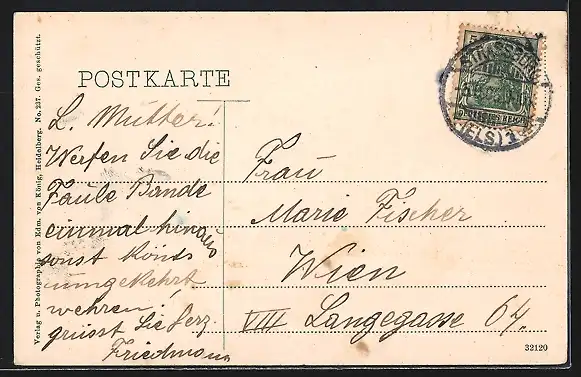 POSTKARTE
L. Mutter!
Werfen Sie die
Faule Bande
einmal hinaus
sonst könts
umgekehrt
wehren!
grüsst Sie herz.
Friedmann
Frau
Marie Fischer
Wien
VIII Langegasse 64.
STRASSBURG
(ELS) 2
5
DEUTSCHES REICH
Verlag u. Photographie von Edm. von König, Heidelberg. No. 237. Ges. geschützt.
32120